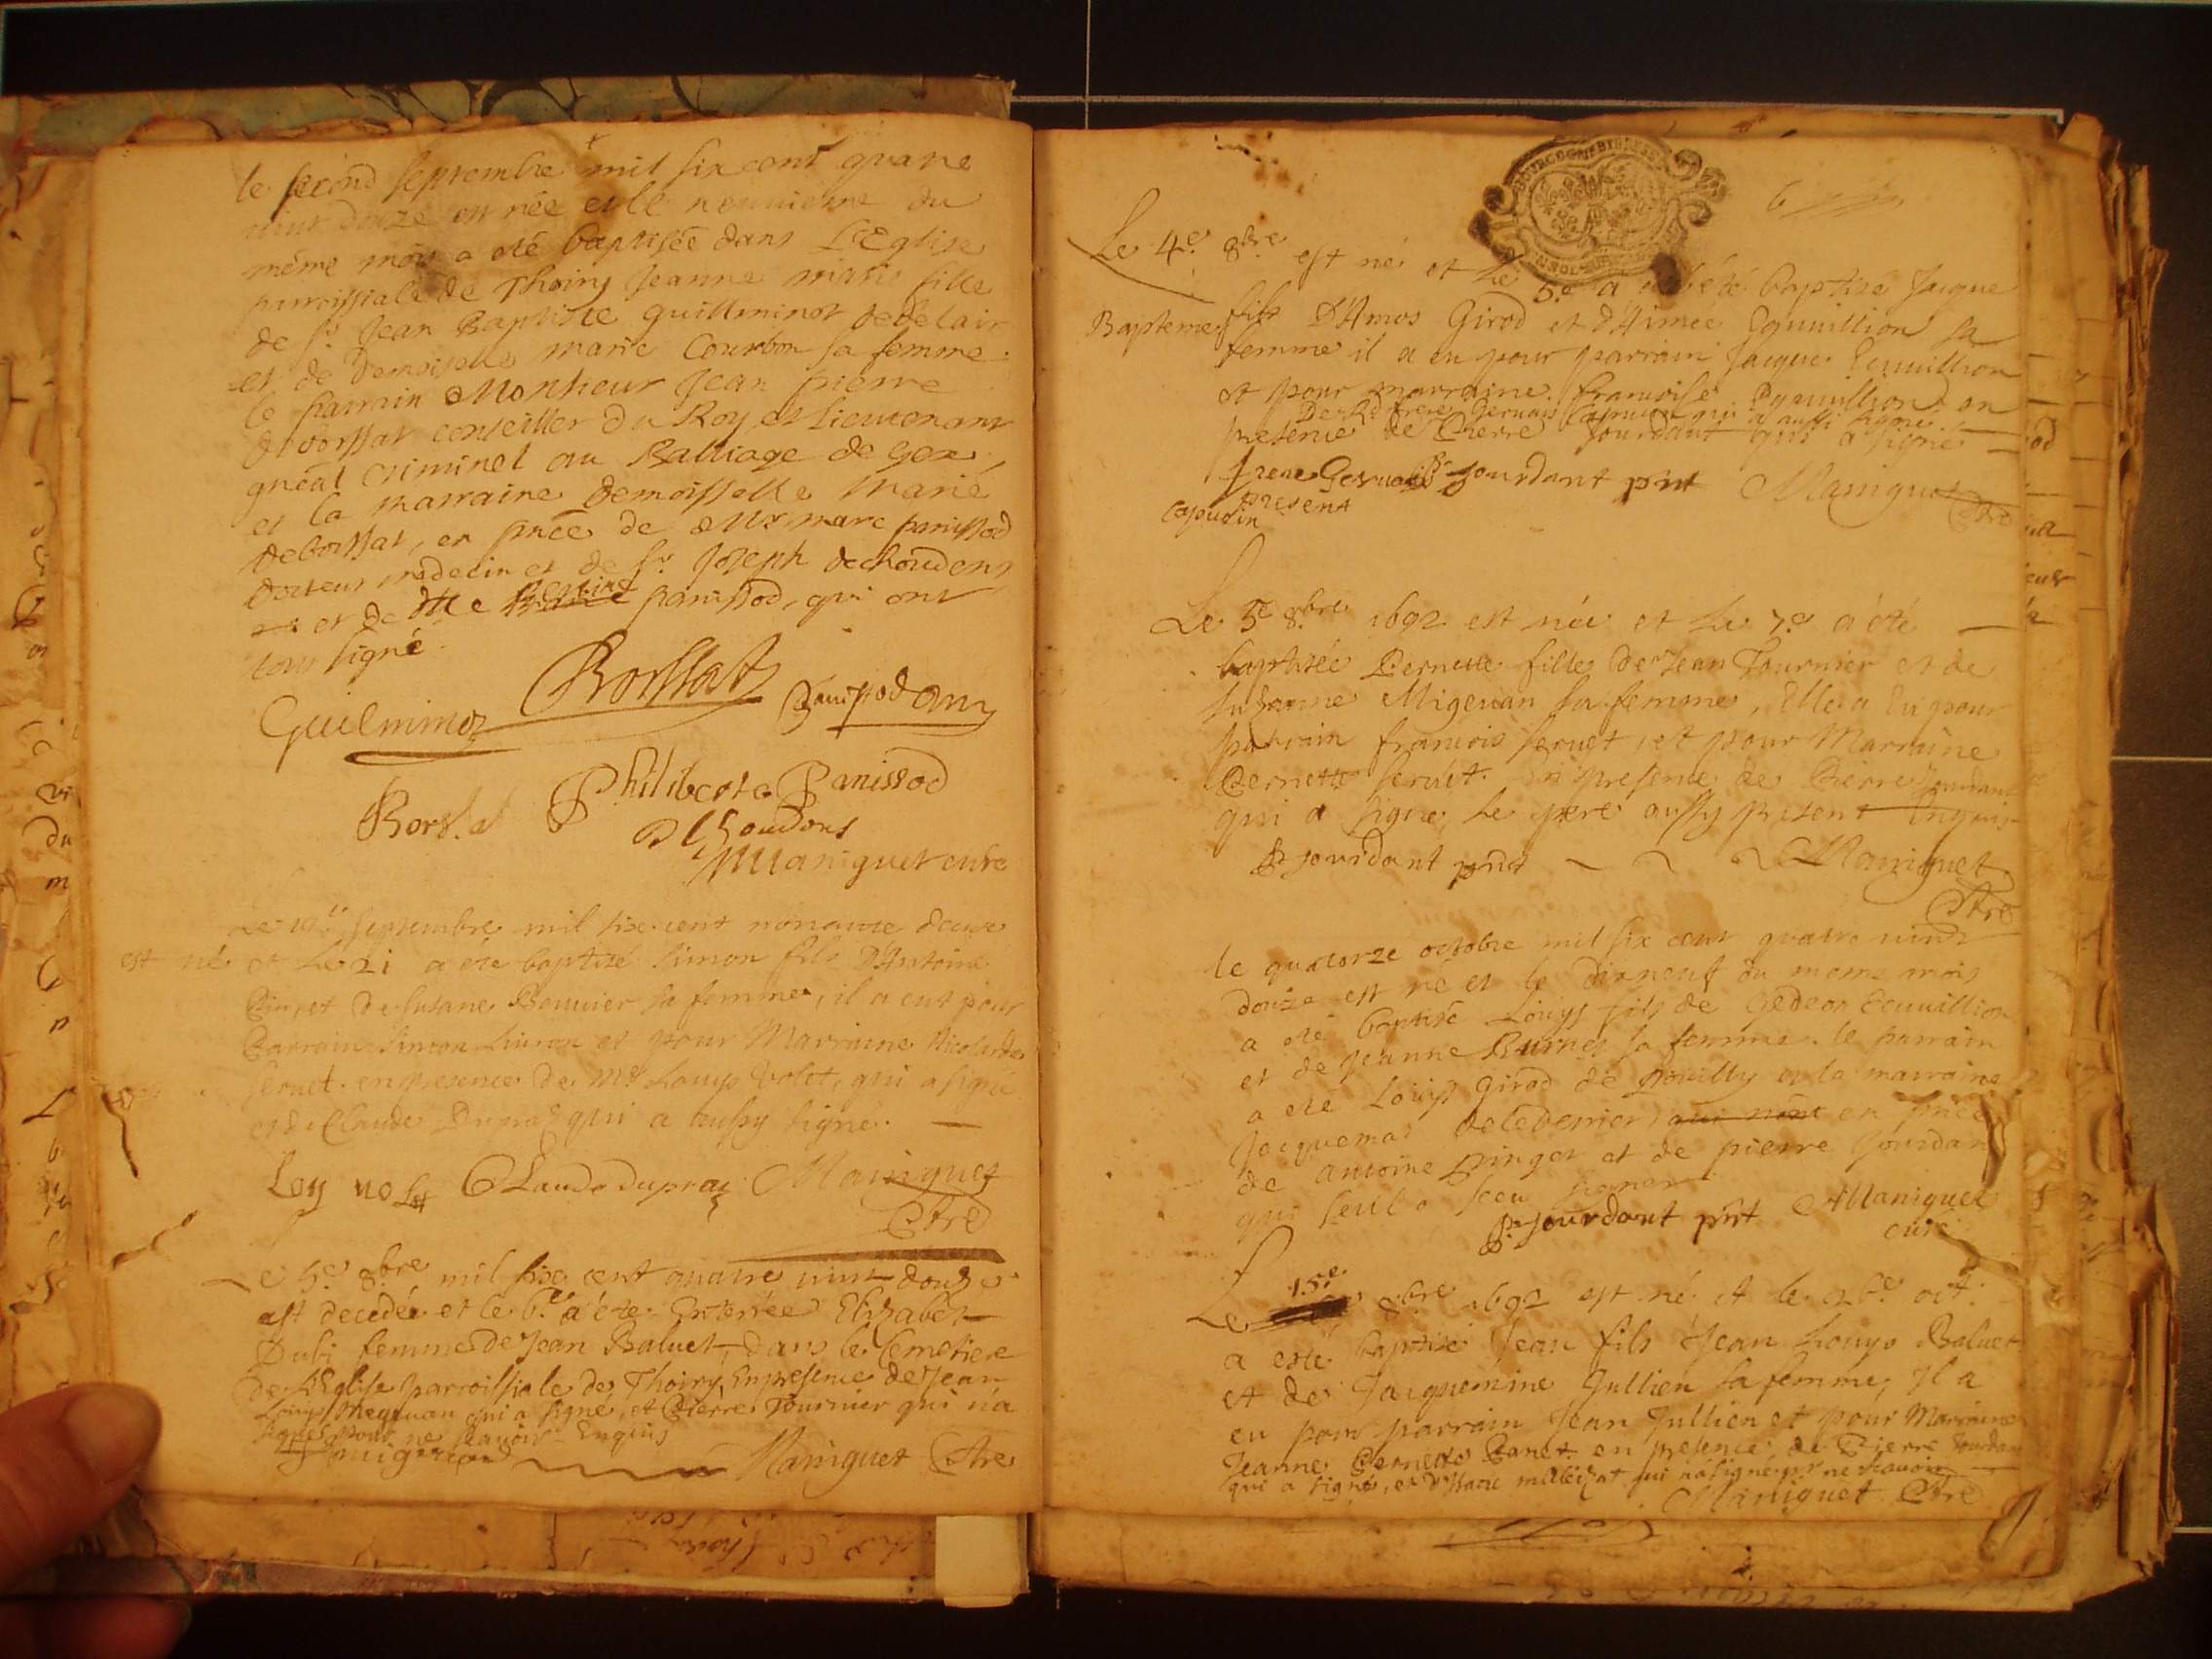 le second septembre mil six cent quatre
vint douze est née et le neuuieme du
même mois a eté baptisée dans L'Eglise
parroissiale de Thoiry Jeanne marie fille
de Sr. Jean Baptiste guilliminot
et de Demoiselle marie Courbon sa femme.
le parrain Monsieur Jean pierre
de borssat conseiller du Roy et lieutenant
gnéal criminel au Balliage de Gex,
et la marraine Demoisselle Marie
deborssat, en pnce de Mr marc panissod
docteur medecin et de Sr Joseph dechoudens
et de panissod, qui ont
tous signé.
Guilminot Borssat Panissod
Borssat Philiberte Panissod
DChoudens
Maniguet curé
septembre mil six cent nonante deux
est né et le 21 a eté baptizé Simon fils D'Antoine
et de Susane Bouuier sa femme, il a eut pour
Parrain Simon et pour Marraine Nicolarde
Seruet. en presence de Mr Louys Volet, qui a signé
et de Claude Dupraz qui a aussy signé. —
Loy volet Claude dupraz Maniguet
Ptre
Le 5e 8bre mil six cent quatre vint douze
est decedée et le 6e a été Enterrée Elizabet
Dubi femme de Jean Baluet, dans le Cemetiere
de L'Eglise parroissiale de Thoiry, En presence de Jean
Louys Megeuan qui a signé, et Pierre Tournier qui n'a
signé pour ne scauoir Enquis
Maniguet Ptre
6
Le 4e. 8bre est né et Le 5e a été baptizé Jacque
Bapteme fils D'Amos Girod et d'Aimée Ecuuillion sa
femme il a eu pour parrain Jacque Ecuuillion
et pour marraine francoise Ecuuillion en
De Rd frere Geruais Capucin qui a aussi signé.
presence de Pierre Jourdant qui a signé —
frere Geruais Pr Jourdant pnt Maniguet
capucin present Ptre
Le 5e 8bre 1692 est née et Le 7e a été —
baptizée Pernette fille de Jean Tournier et de
Suzanne Migeuan sa femme, Elle a Eu pour
parrain francois Seruet, et pour Marraine
Pernette Seruet. En presence de Pierre Jourdant
qui a signé, Le pere aussy present Enquis
Pr jourdant pnt Maniguet
Ptre
le quatorze octobre mil six cent quatre vint
douze est né et le dixneuf du meme mois
a eté baptizé Louys fils de Gedeon Ecuuillion
et de Jeanne sa femme. le parrain
a eté Louys Girod de pouilly et la marraine
Jacquema delederrier, qui n'ont en pnce
de antoine pinget et de pierre Jourdan
qui seul a sceu signer
Pr Jourdant pnt Maniguet
curé
Le 15e 8bre 1692 est né et le 26e oct.
a esté baptizé Jean fils Jean Louys Baluet
et de Jacquemine Jullien sa femme, Il a
eu pour parrain Jean Jullien et pour Marraine
Jeanne Pernette Panet en presence de Pierre Jourdan
qui a signé, et qui n'a signé pr ne scauoir
Maniguet Ptre